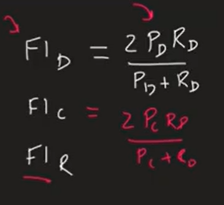 F1_D = 2 P_D R_D / P_D + R_D
F1_C = 2 P_C R_P / P_C + R_D
F1_R